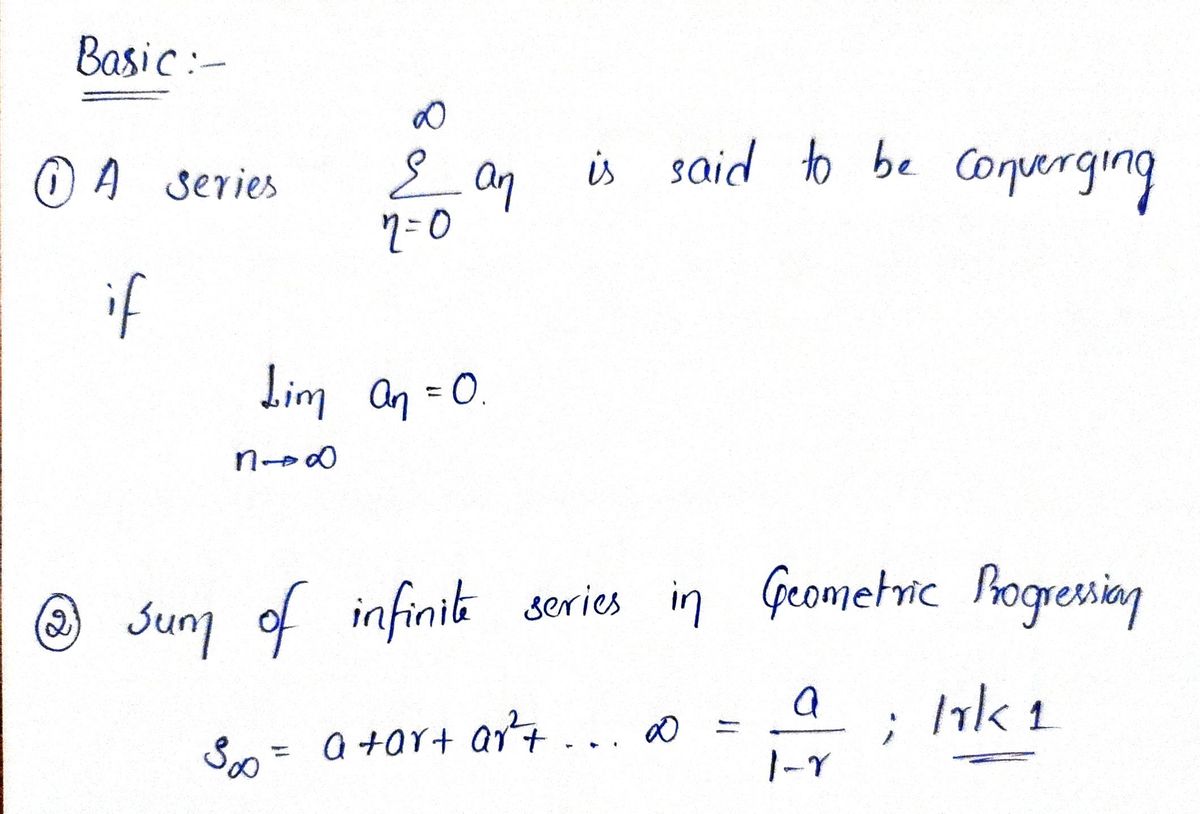 Basic :-
① A series ∞ Σ n=0 an is said to be converging
if
Lim an = 0.
n→∞
② Sum of infinite series in Geometric Progression
S∞ = a + ar + ar² + ... ∞ = a / 1-r ; |r| < 1